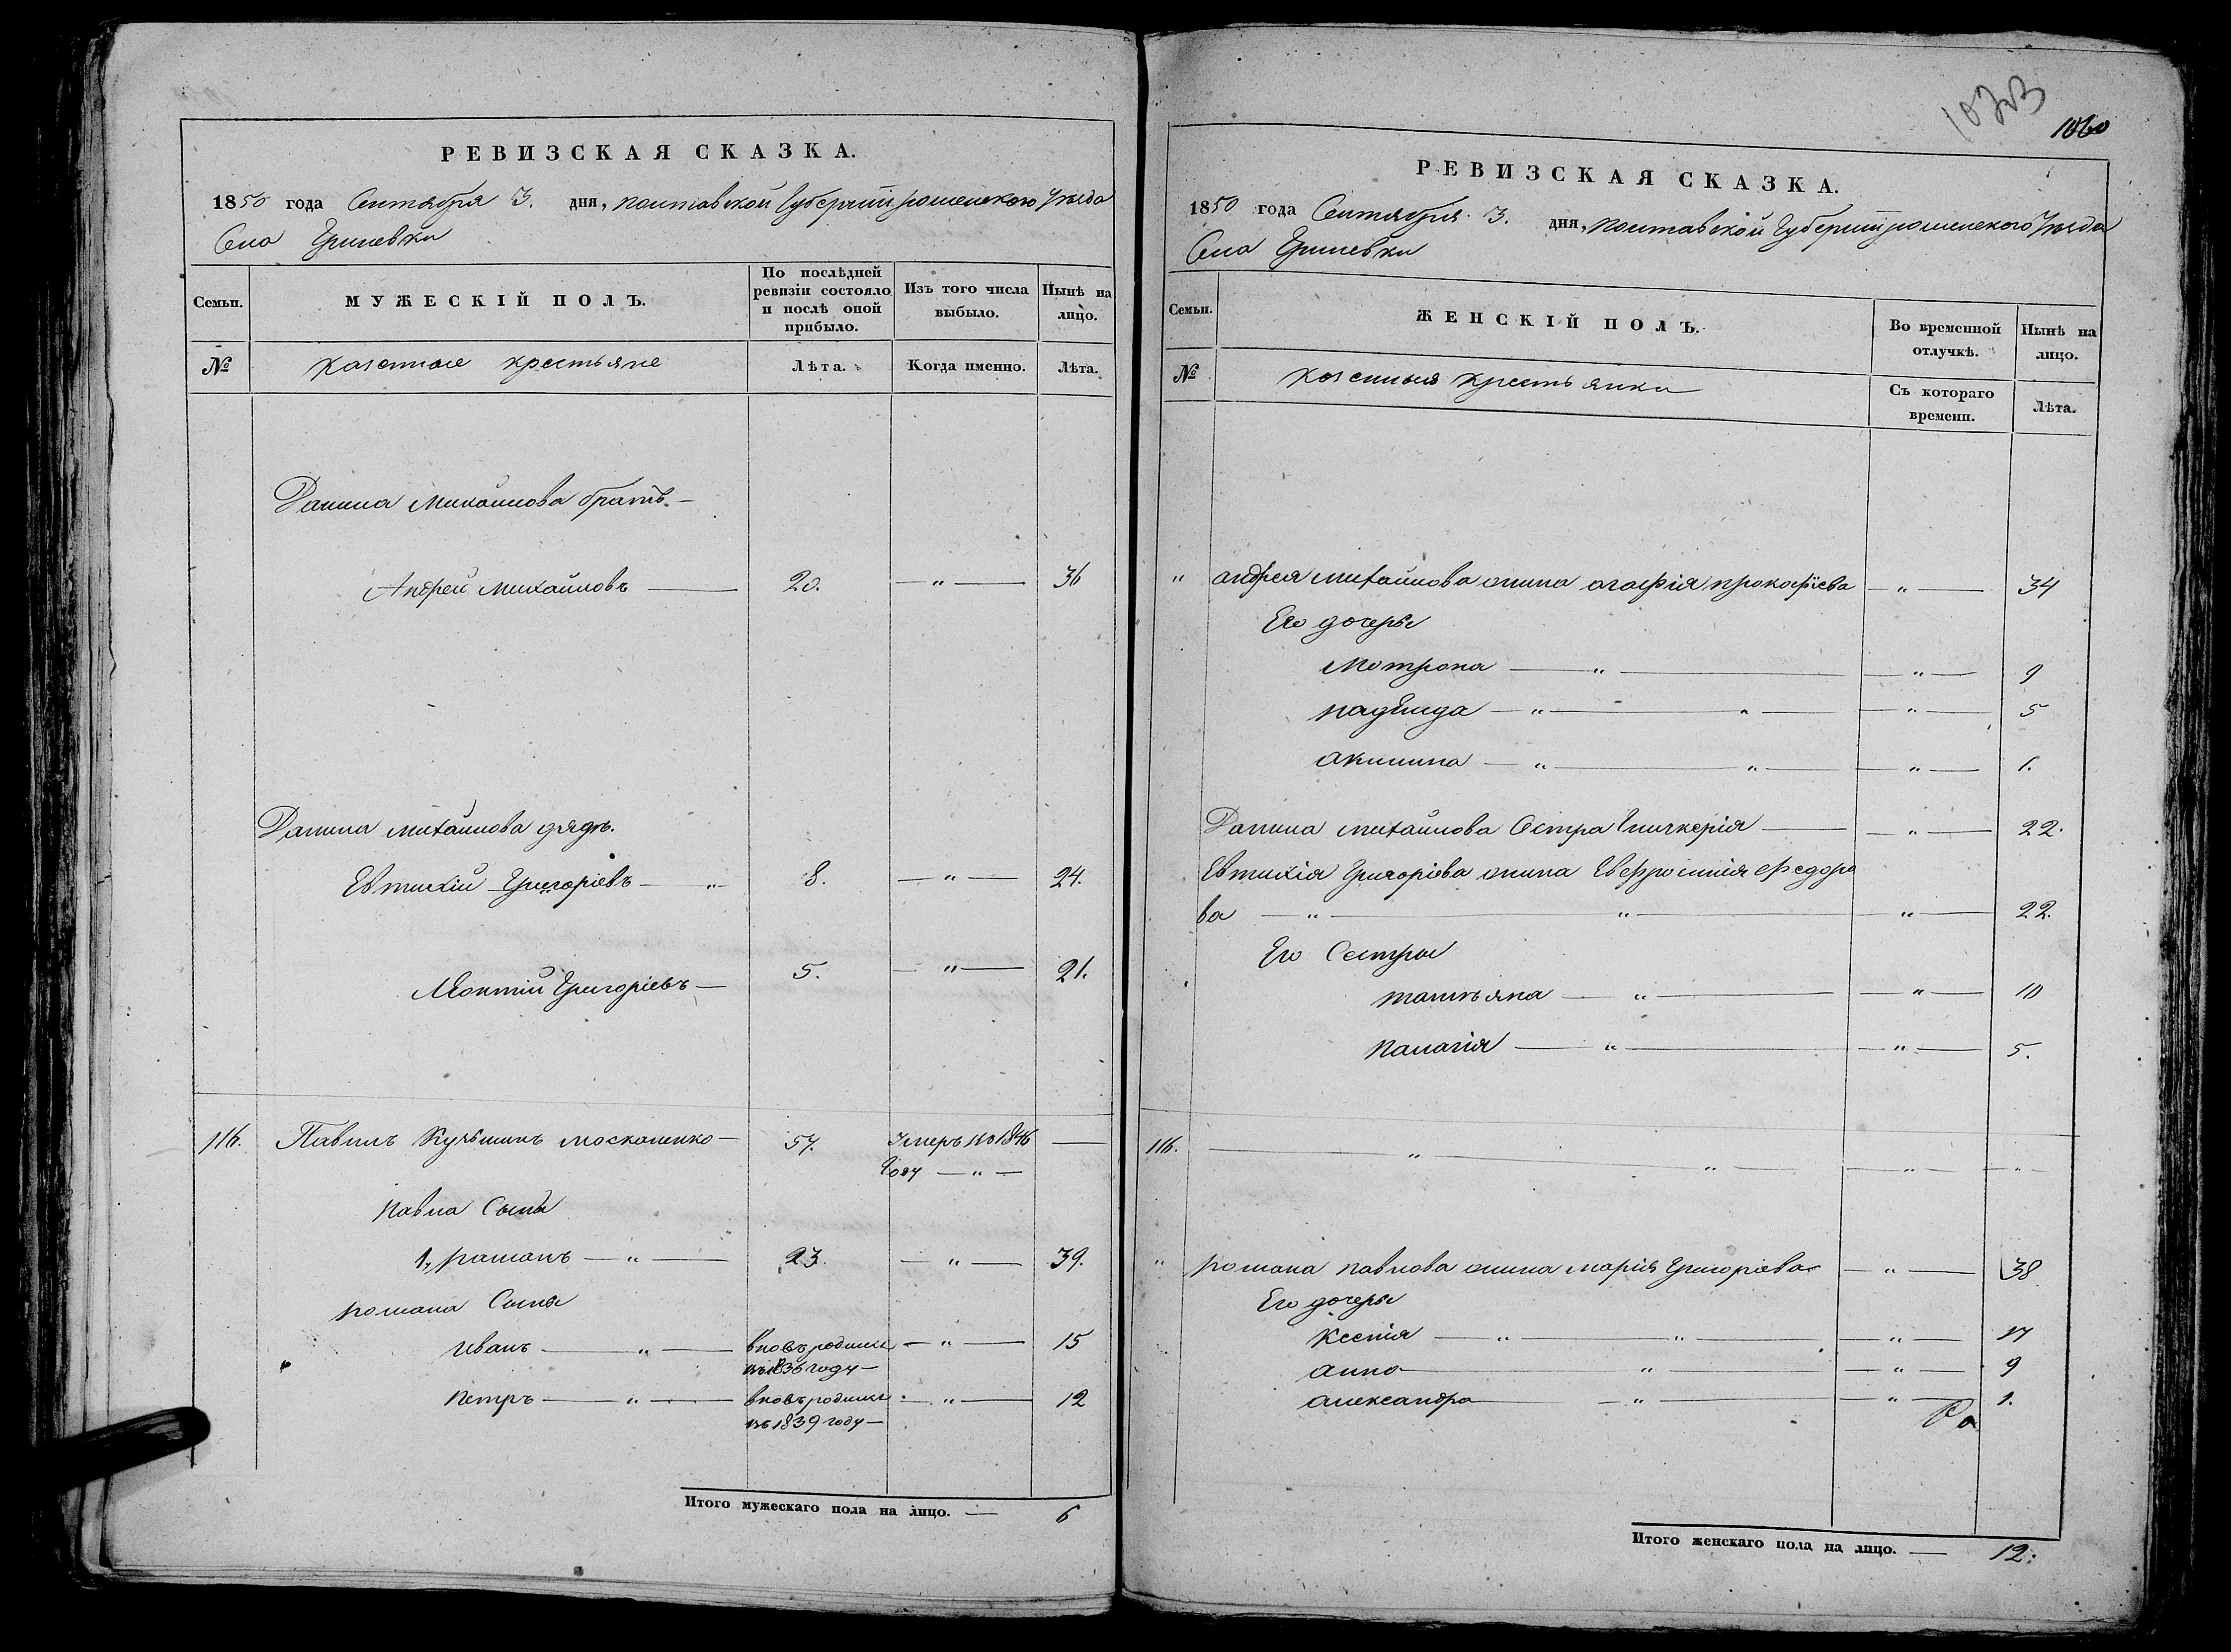 РЕВИЗСКАЯ СКАЗКА.
1850 года Сентября 3. дня, полтавской Губерніи роменского Уезда
Села Гришевки
Семьи. МУЖЕСКІЙ ПОЛЪ. По послѣдней ревизіи состояло и послѣ оной прибыло. Изъ того числа выбыло. Нынѣ на лицо.
№ казенные крестьяне Лѣта. Когда именно. Лѣта.
Данила Михайлова братъ. —
Андрей Михайловъ — 20. — " — 36
Данила Михайлова дядъ.
Евтихій Григоріевъ — " 8. — " — 24.
Леонтій Григоріевъ — 5. — " — 21.
116. Павилъ Кузьминъ Москаленко — 57. Умеръ 1846
Году — " —
Павла Сынъ
1, романъ — " — 23. — " — 39.
романа Сыны
Иванъ — " — вновь родился — " — 15
въ 1836 году —
Петръ — " — вновь родился — " — 12
въ 1839 году —
Итого мужескаго пола на лицо. — 6
1060
РЕВИЗСКАЯ СКАЗКА.
1850 года Сентября 3. дня, полтавской Губерніи роменского Уезда
Села Гришевки
Семьи. ЖЕНСКІЙ ПОЛЪ. Во временной отлучкѣ. Нынѣ на лицо.
№ казенныя крестьянки Съ котораго времени. Лѣта.
" андрея михайлова жина агафія прокофіева — " — 34
Его дочеры
Мотрона — " — — " — 9
надежда — " — " — — " — 5
акилина — " — " — — " — 1.
Данила михайлова Сестра Гликерія — — " — 22.
Евтихія Григоріева жина Евфросинія федоро
ва — " — " — " — 22.
Его Сестры
татьяна — " — — " — 10
палагія — " — — " — 5.
116. — " — " — — " — — " —
" романа павлова жина марія Григорієва — " — 38
Его дочеры
Ксенія — " — " — — " — 17
анна — " — — " — 9
александра — " — — " — 1.
Итого женскаго пола на лицо. — 12.